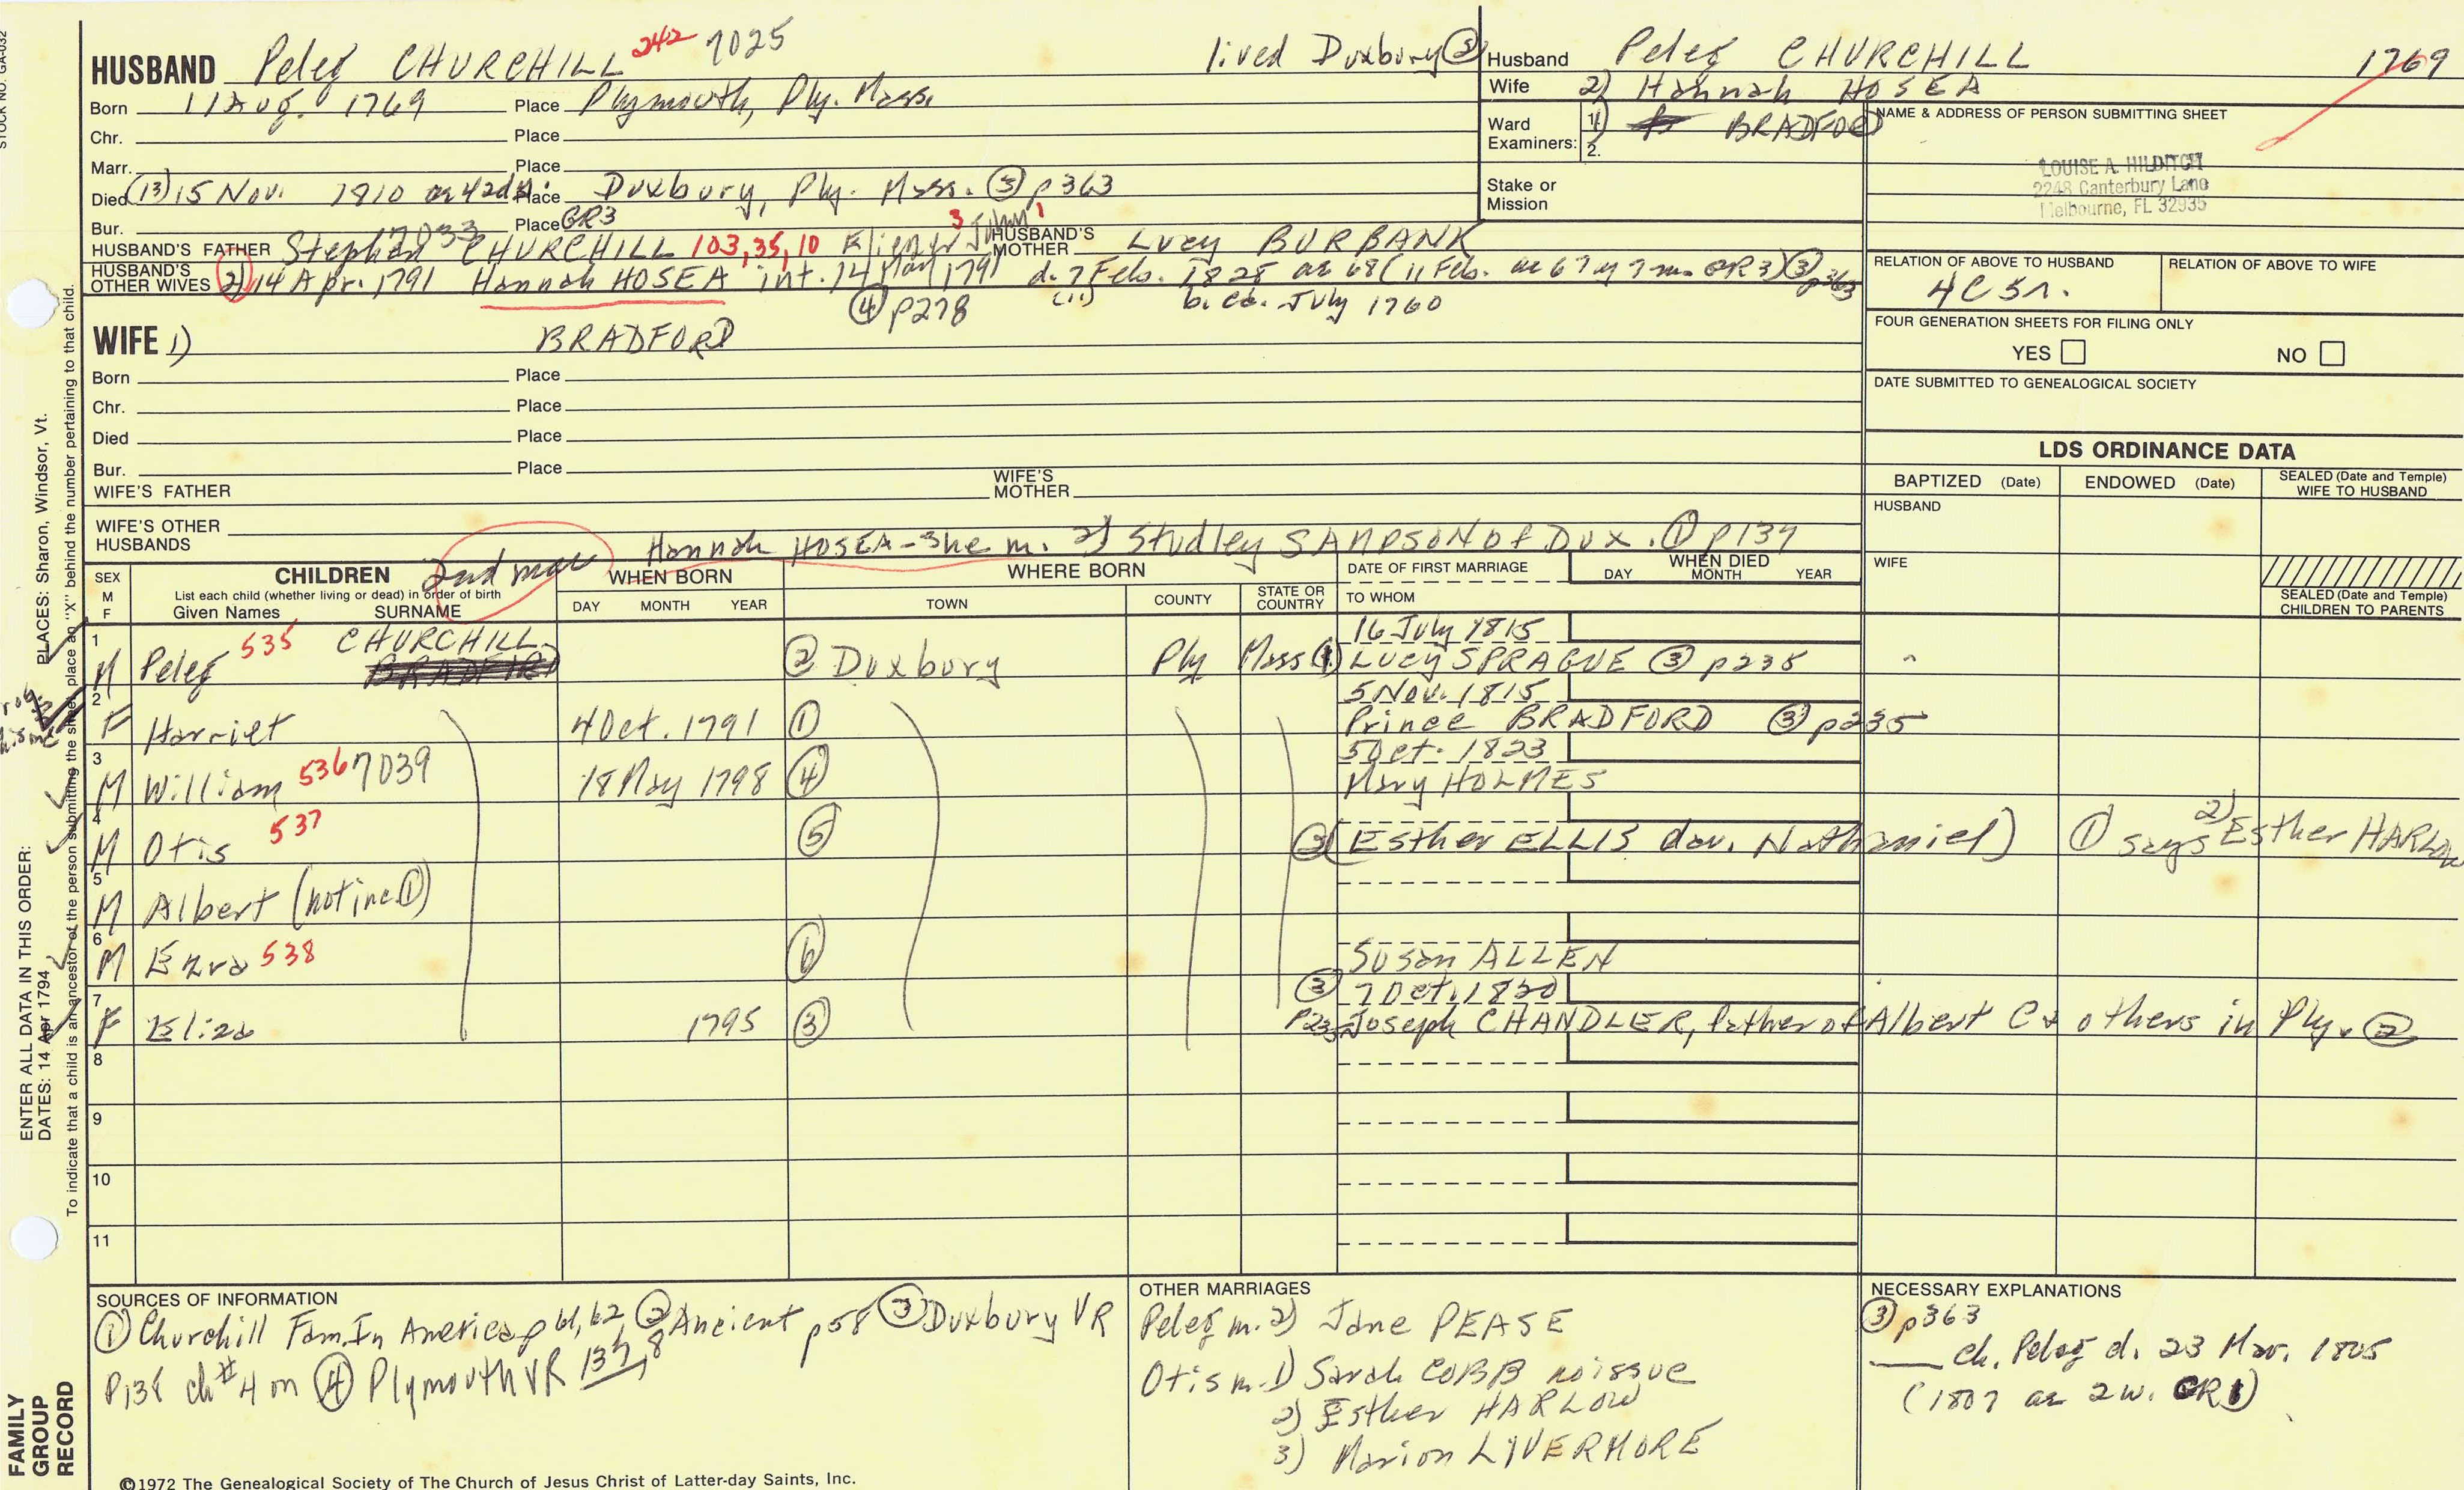 STOCK NO. GA-032
HUSBAND Peleg CHURCHILL 242 7025 lived Duxbury ③
Born 11 Aug. 1769 Place Plymouth, Ply. Mass.
Chr. Place
Marr. Place
Died (13) 15 Nov. 1810 ae 42 Place Duxbury, Ply. Mass. ③ p363
Bur. Place GR3
7033 3 1
HUSBAND'S FATHER Stephen CHURCHILL 103,35,10 HUSBAND'S MOTHER Lucy BURBANK
HUSBAND'S OTHER WIVES 2) 14 Apr. 1791 Hannah HOSEA int. 14 Mar 1791 d. 7 Feb. 1828 ae 68 (11 Feb. ae 67 y 7 m. GR3) ③ p363
④ p278 (11) b. ca. July 1760
WIFE 1) BRADFORD
Born Place
Chr. Place
Died Place
Bur. Place
WIFE'S FATHER WIFE'S MOTHER
WIFE'S OTHER HUSBANDS Hannah HOSEA - She m. 2) Studley SAMPSON of Dux. ① p137
Husband Peleg CHURCHILL 1769
Wife 2) Hannah HOSEA
Ward Examiners: 1. 1) BRADFORD
2.
Stake or Mission
NAME & ADDRESS OF PERSON SUBMITTING SHEET
LOUISE A. HILDITCH
2248 Canterbury Lane
Melbourne, FL 32935
RELATION OF ABOVE TO HUSBAND RELATION OF ABOVE TO WIFE
4C5r.
FOUR GENERATION SHEETS FOR FILING ONLY
YES NO
DATE SUBMITTED TO GENEALOGICAL SOCIETY
LDS ORDINANCE DATA
BAPTIZED (Date) ENDOWED (Date) SEALED (Date and Temple) WIFE TO HUSBAND
HUSBAND
WIFE
SEALED (Date and Temple) CHILDREN TO PARENTS
SEX M F CHILDREN 2nd mar WHEN BORN WHERE BORN DATE OF FIRST MARRIAGE WHEN DIED
List each child (whether living or dead) in order of birth
Given Names SURNAME DAY MONTH YEAR TOWN COUNTY STATE OR COUNTRY TO WHOM DAY MONTH YEAR
1 CHURCHILL 16 July 1815
M Peleg 535 BRADFORD ② Duxbury Ply Mass ① Lucy SPRAGUE ③ p235
2 5 Nov. 1815
F Harriet 4 Oct. 1791 ① Prince BRADFORD ③ p235
3 5 Oct. 1823
M William 536 7039 18 May 1798 ④ Mary HOLMES
4
M Otis 537 ⑤ ② (Esther ELLIS dau. Nathaniel) ① says 2) Esther HARLOW
5
M Albert (not in ①)
6
M Ezra 538 ⑥ Susan ALLEN
7 ③ 7 Oct. 1820
F Eliza 1795 ③ Joseph CHANDLER, father of Albert C & others in Ply. ②
8
9
10
11
SOURCES OF INFORMATION
① Churchill Fam. In America p 61,62 ② Ancient p58 ③ Duxbury VR
p138 ch #4 on ④ Plymouth VR 137,8
OTHER MARRIAGES
Peleg m. 2) Jane PEASE
Otis m. 1) Sarah COBB no issue
2) Esther HARLOW
3) Marion LIVERMORE
NECESSARY EXPLANATIONS
③ p363
___ ch. Peleg d. 23 Mar. 1805
(1807 ae 2 w. GR1)
ENTER ALL DATA IN THIS ORDER:
DATES: 14 Apr 1794
PLACES: Sharon, Windsor, Vt.
To indicate that a child is an ancestor of the person submitting the sheet, place an "X" behind the number pertaining to that child.
FAMILY GROUP RECORD
©1972 The Genealogical Society of The Church of Jesus Christ of Latter-day Saints, Inc.